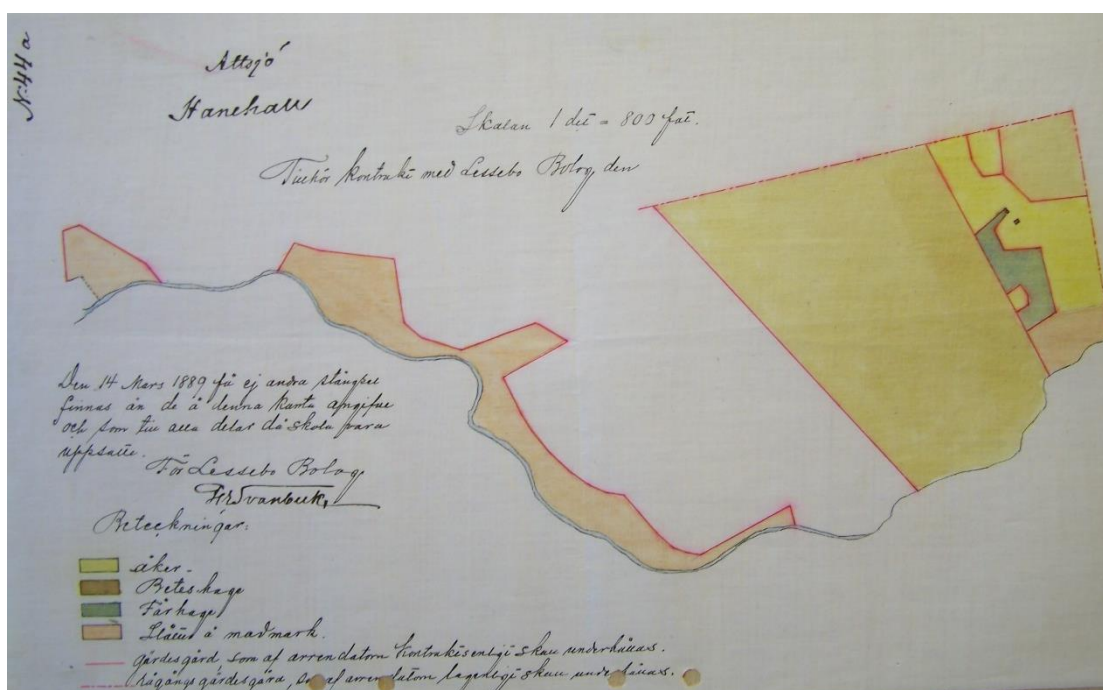 N:44 a
Attsjö
Hanehall
Skalan 1 det = 800 fot.
Tillhör kontrakt med Lessebo Bolag den
Den 14 Mars 1889 få ej andra stängsel
finnas än de å denna karta angifne
och som till alla delar då skola vara
uppsatte.
För Lessebo Bolag
Beteckningar:
åker.
Beteshage
Fårhage
Slåtter å madmark.
gärdesgård, som af arrendatorn kontraktsenligt skall underhållas.
rågångs gärdesgård, som af arrendatorn lagenligt skall underhållas.